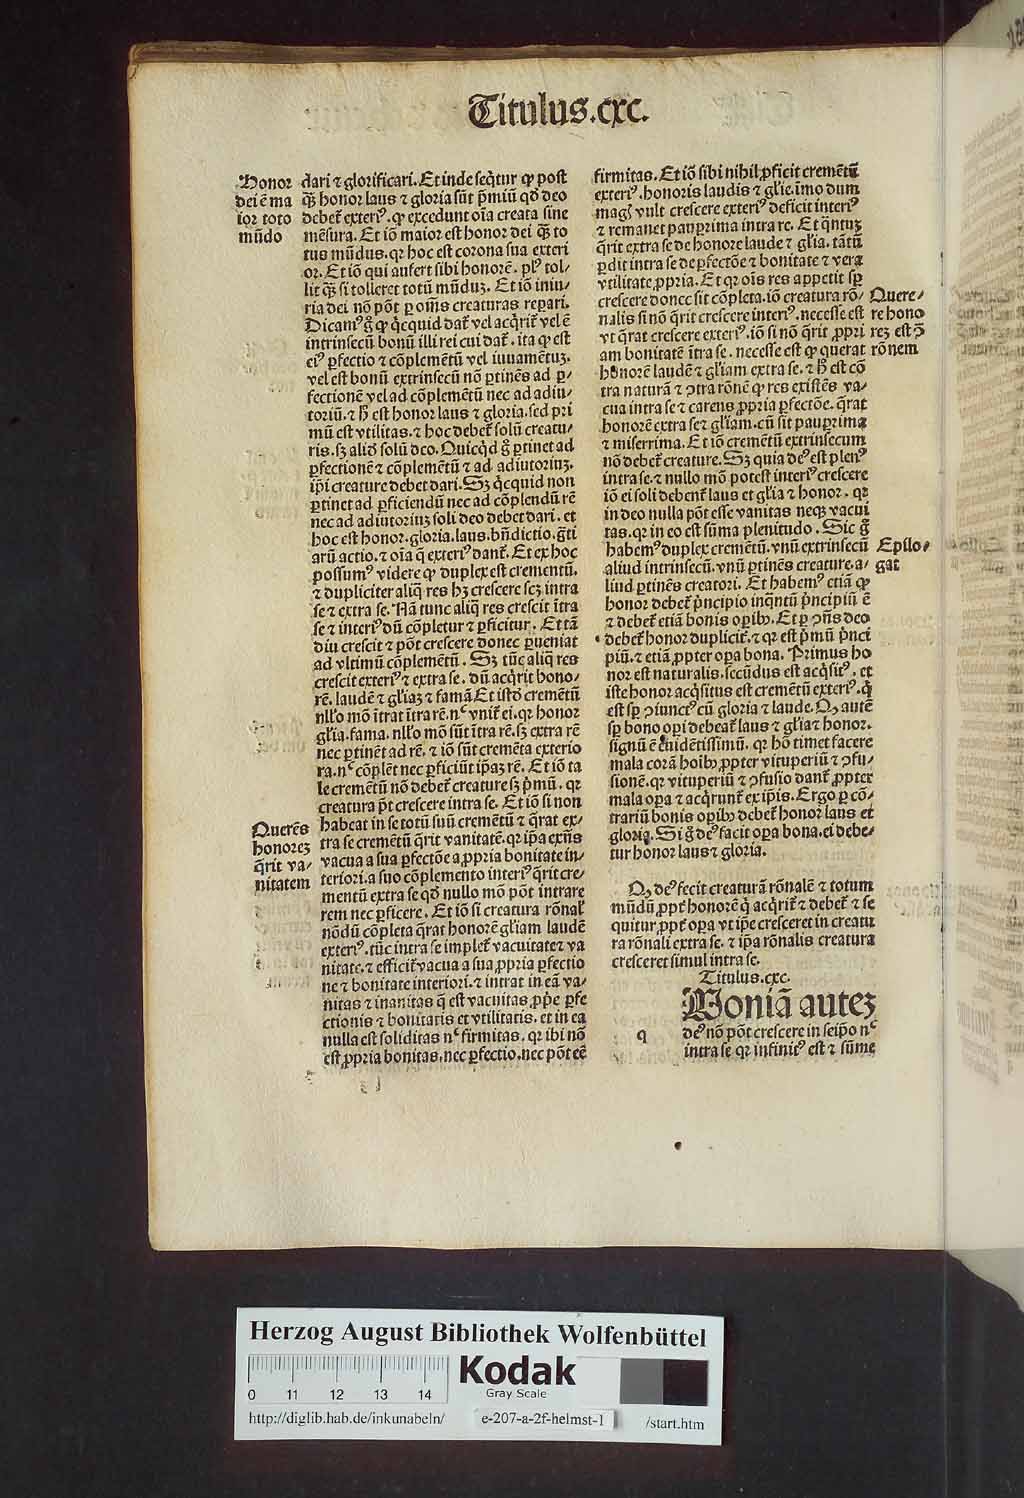 Titulus.cxc.
Honor
dei ē ma
ior toto
mūdo
dari ⁊ glorificari. Et inde seq̄tur ꝙ post
q̄ꝫ honor laus ⁊ gloria sūt p̄miū qd̄ deo
debet̄ exteriꝰ. ꝙ excedunt oīa creata sine
mēsura. Et iō maior est honor dei q̄ꝫ to
tus mūdus. qr hoc est corona sua exteri
or. Et iō qui aufert sibi honorē. plꝰ tol/
lit q̄ꝫ si tolleret totū mūduꝫ. Et iō iniu/
ria dei nō pōt ꝑ om̄s creaturas reꝑari.
Dicamꝰ g̊ ꝙ q̇cquid dat̄ vel acq̇rit̄ vel ē
intrinsecū bonū illi rei cui dat̄. ita ꝙ est
eiꝰ ꝑfectio ⁊ cōplemētū vel iuuamētuꝫ.
vel est bonū extrinsecū nō ꝑtinēs ad ꝑ/
fectionē vel ad cōplemētū nec ad adiu/
toriū. ⁊ h̄ est honor laus ⁊ gloria. sed pri
mū est vtilitas. ⁊ hoc debet̄ solū creatu/
ris. sꝫ aliḋ solū deo. Quicq̇d g̊ ꝑtinet ad
ꝑfectionē ⁊ cōplemētū ⁊ ad adiutoriuꝫ.
ip̄i creature debet dari. Sꝫ q̇cquid non
ꝑtinet ad ꝑficiendū nec ad cōplendū rē
nec ad adiutoriuꝫ soli deo debet dari. et
hoc est honor. gloria. laus. bn̄dictio. gr̄ti
arū actio. ⁊ oīa q̄ exteriꝰ dant̄. Et ex hoc
possumꝰ videre ꝙ duplex est crementū.
⁊ dupliciter aliq̄ res hꝫ crescere scꝫ intra
se ⁊ extra se. Nā tunc aliq̄ res crescit ītra
se ⁊ interiꝰ dū completur ⁊ ꝑficitur. Et tā
diu crescit ⁊ pōt crescere donec ꝑueniat
ad vltimū cōplemētū. Sꝫ tūc aliq̄ res
crescit exteriꝰ ⁊ extra se. dū acq̇rit hono/
rē. laudē ⁊ gl̄iaꝫ ⁊ famā Et istḋ cremētū
nll̄o mō ītrat ītra rē. nᶜ vnit̄ ei. qr honor
gl̄ia. fama. nll̄o mō sūt ītra rē. sꝫ extra rē
nec ꝑtinēt ad rē. ⁊ iō sūt cremēta exterio
ra. nᶜ cōplēt nec ꝑficiūt ip̄aꝫ rē. Et iō ta
le cremētū nō debet̄ creature sꝫ p̄mū. qr
creatura p̄t crescere intra se. Et iō si non
habeat in se totū suū cremētū ⁊ q̄rat ex/
Querēs
honoreꝫ
q̄rit va/
nitatem
tra se cremētū q̄rit vanitatē. qr ip̄a exn̄s
vacua a sua ꝑfectōe a ꝓpria bonitate in/
teriori. a suo cōplemento interiꝰ q̄rit cre/
mentū extra se qḋ nullo mō pōt intrare
rem nec ꝑficere. Et iō si creatura rōnal̄
nōdū cōpleta q̄rat honorē gl̄iam laudē
exteriꝰ. tūc intra se implet̄ vacuitate ⁊ va
nitate. ⁊ efficit̄ vacua a sua ꝓpria ꝑfectio
ne ⁊ bonitate interiori. ⁊ intrat in eā va/
nitas ⁊ inanitas q̄ est vacuitas ꝓp̄e ꝑfe
ctionis ⁊ bonitatis et vtilitatis. et in ea
nulla est soliditas nᶜ firmitas. qr ibi nō
est ꝓpria bonitas. nec ꝑfectio. nec pōt eē
firmitas. Et iō sibi nihil ꝓficit cremētū
exteriꝰ. honoris laudis ⁊ gl̄ie. īmo dum
magꝭ vult crescere exteriꝰ deficit interiꝰ
⁊ remanet pauꝑrima intra re. Et q̄ntuꝫ
q̄rit extra se de honore laude ⁊ gl̄ia. tātū
ꝑdit intra se de ꝑfectōe ⁊ bonitate ⁊ vera
vtilitate ꝓpria. Et qr oīs res appetit sꝑ
crescere donec sit cōpleta. iō creatura rō/
nalis si nō q̄rit crescere interiꝰ. necesse est
vt q̄rat crescere exteriꝰ. iō si nō q̄rit ꝓpri
am bonitatē ītra se. necesse est ꝙ querat
honorē laudē ⁊ gl̄iam extra se. ⁊ h̄ est cō
tra naturā ⁊ ↄtra rōnē ꝙ res existēs va/
cua intra se ⁊ carens ꝓpria ꝑfectōe. q̄rat
honorē extra se ⁊ gl̄iam. cū sit pauꝑrima
⁊ miserrima. Et iō cremētū extrinsecum
nō debet̄ creature. Sꝫ quia deꝰ est plenꝰ
intra se. ⁊ nullo mō potest interiꝰ crescere
iō ei soli debent̄ laus et gl̄ia ⁊ honor. qr
in deo nulla pōt esse vanitas neqꝫ vacui
tas. qr in eo est sūma plenitudo. Sic g̊
habemꝰ duplex cremētū. vnū extrinsecū
aliud intrinsecū. vnū ꝑtinēs creature. a/
liud ꝑtinēs creatori. Et habemꝰ etiā ꝙ
honor debet̄ p̄ncipio inq̄ntū p̄ncipiū ē
⁊ debet̄ etiā bonis oꝑibꝫ. Et ꝑ ↄn̄s deo
debet̄ honor duplicit̄. ⁊ qr est p̄mū p̄nci
piū. ⁊ etiā ꝓpter oꝑa bona. Primus ho
nor est naturalis. secūdus est acq̇sitꝰ. et
iste honor acq̇situs est cremētū exteriꝰ. q̇
est sꝑ ↄiunctꝰ cū gloria ⁊ laude. Ꝙ autē
sꝑ bono oꝑi debeat̄ laus ⁊ gl̄ia ⁊ honor.
signū ē euidētissimū. qr hō timet facere
mala corā hoībꝫ ꝓpter vituperiū ⁊ ↄfu/
sionē. qr vituperiū ⁊ ↄfusio dant̄ ꝓpter
mala oꝑa ⁊ acq̇runt̄ ex ip̄is. Ergo ꝑ cō/
trariū bonis oꝑibꝫ debet̄ honor laus et
gloria. Si g̊ deꝰ facit oꝑa bona. ei debe/
tur honor laus ⁊ gloria.
Quere/
re hono
reꝫ est ↄ̄
rōnem
Epilo/
gat
Ꝙ deꝰ fecit creaturā rōnalē ⁊ totum
mūdū ꝓpt̄ honorē q̇ acq̇rit̄ ⁊ debet̄ ⁊ se
quitur ꝓpt̄ oꝑa vt ip̄e cresceret in creatu
ra rōnali extra se. ⁊ ip̄a rōnalis creatura
cresceret simul intra se.
Titulus.cxc.
Qoniā auteꝫ
q
deꝰ nō pōt crescere in seip̄o nᶜ
intra se qr infinitꝰ est ⁊ sūme
Herzog August Bibliothek Wolfenbüttel
Kodak
Gray Scale
0 11 12 13 14
http://diglib.hab.de/inkunabeln/ e-207-a-2f-helmst-1 /start.htm